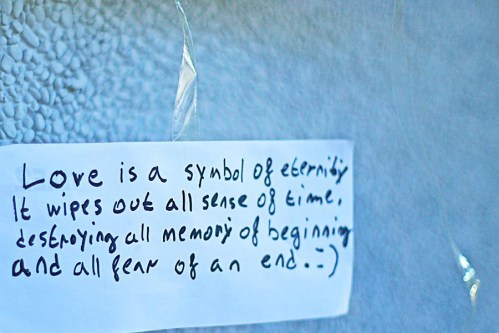 Love is a symbol of eternity
It wipes out all sense of time,
destroying all memory of beginning
and all fear of an end. =)